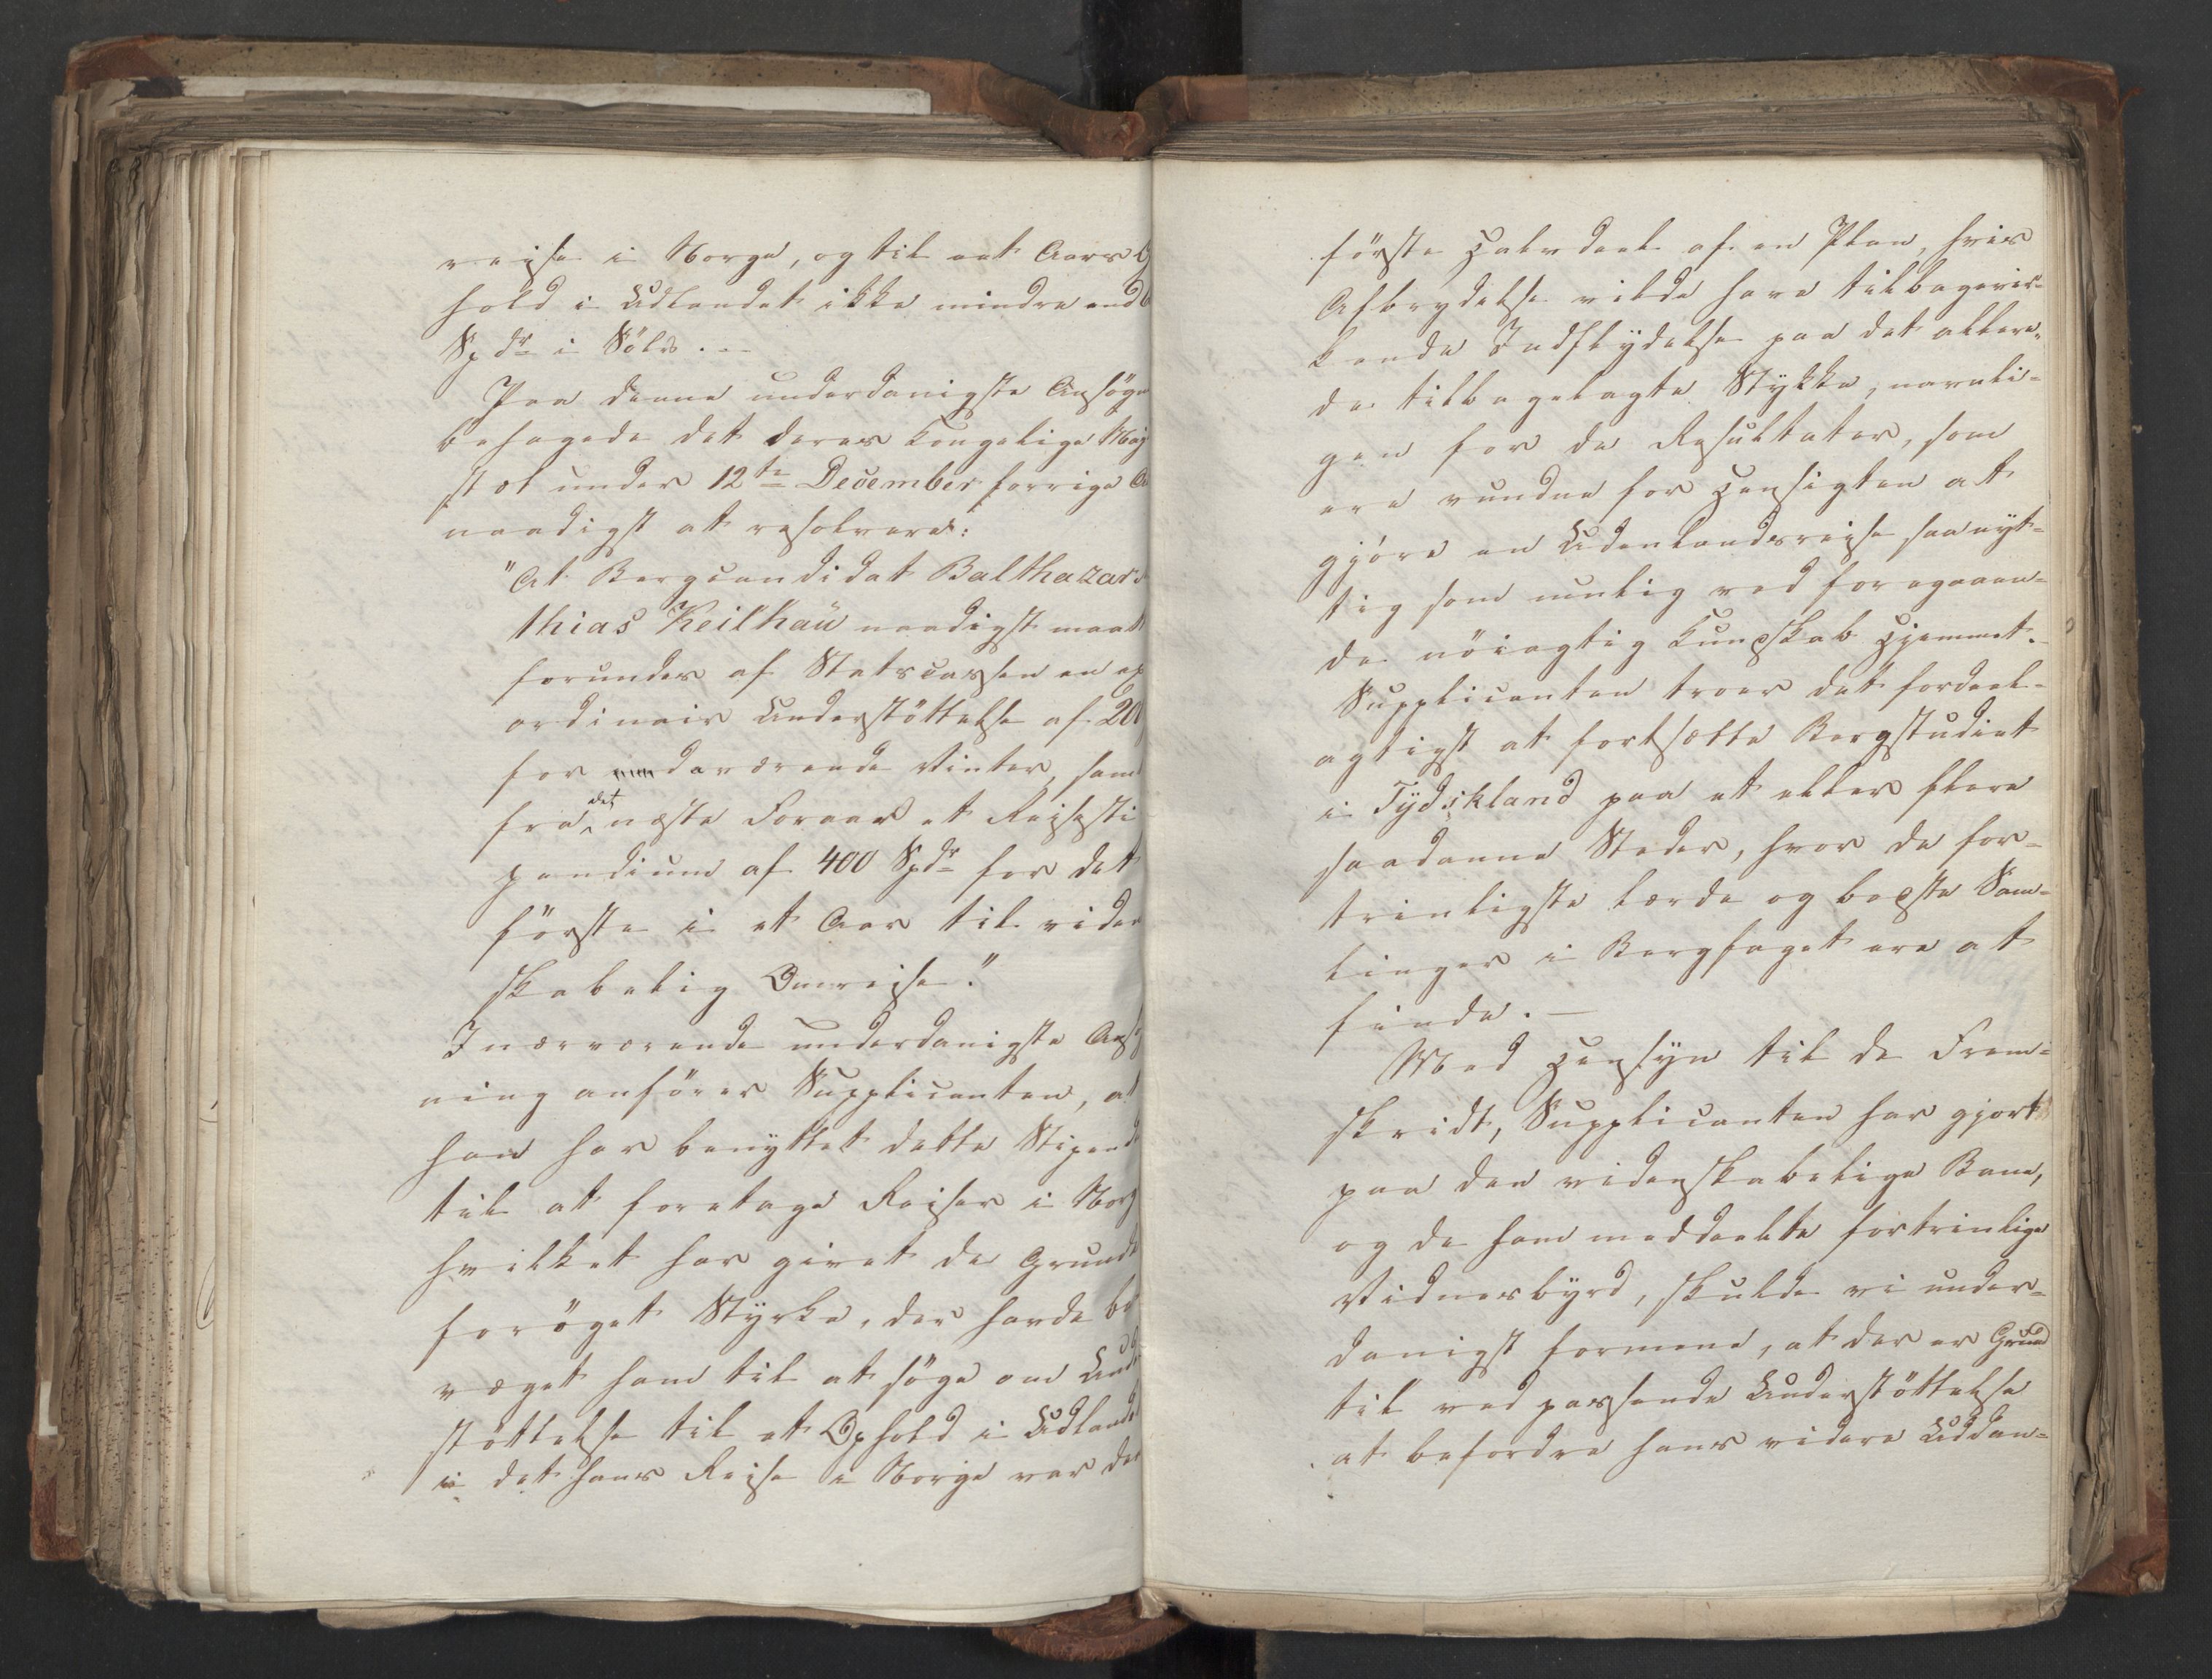 reise i Norge, og til eet Aars
hold i Udlandet ikke mindre end
Spdr i Sölv. —
Paa denne underdanigste Ansögn
behagede det deres Kongelige Maj
stæt under 12te December forrige A
naadigst at resolvere:
"At Bergcandidat Balthazar
thias Keilhaü naadigst maatt
forundes af Statscassen en
ordinair Understöttelse af 20
for daværende Vinter, samt
fra det næste Foraar et Reisesti
pendium af 400 Spdr for det
förste i et Aar til viden
skabelig Omreise."
I nærværende underdanigste Ans
ning anförer Supplicanten, at
han har benyttet dette Stipend
til at foretage Reiser i Norg
hvilket har givet de Grunde
foröget Styrke, der havde be
væget ham til at söge om Und
stöttelse til et Ophold i Udland
i det hans Reise i Norge var de
förste Halvdeel af en Plan, hvis
Afbrydelse vilde have tilbagevir=
kende Indflydelse paa det allere=
de tilbagelagte Stykke, navnli=
gen for de Resultater, som
ere vundne for Hensigten at
gjöre en Udenlandsreise saa nyt=
tig som mulig ved foregaaen=
de nöiagtig Kundskab Hjemmet.
Supplicanten troer det fordeel=
agtigst at fortsætte Bergstudiet
i Tydskland paa et eller flere
saadanne Steder, hvor de for=
trinligste Lærde og bedste Sam=
linger i Bergfaget ere at
finde. —
Med Hensyn til de Frem=
skridt, Supplicanten har gjort
paa den videnskabelige Bane,
og de ham meddeelte fortrinlige
Vidnesbyrd, skulde vi under=
danigst formene, at der er Grund
til ved passende Understöttelse
at befordre hans videre Uddan=